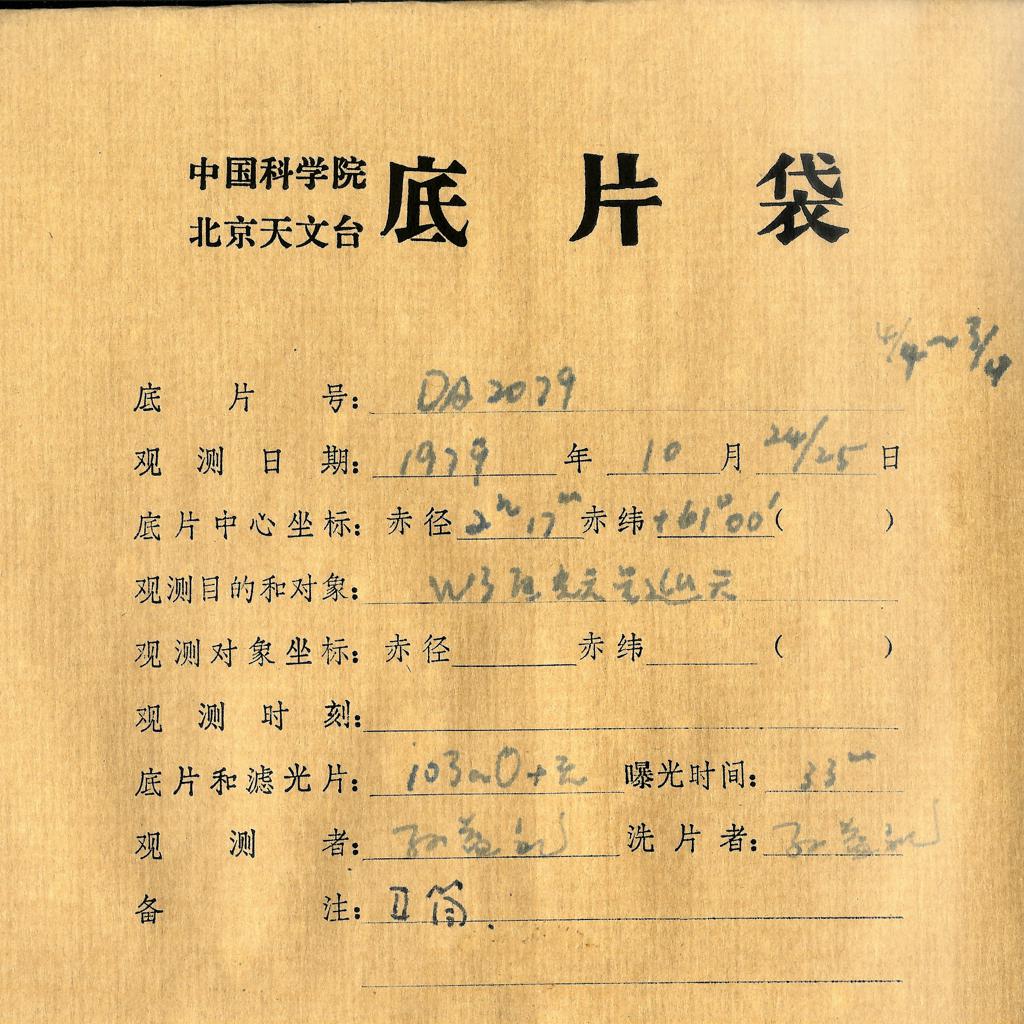 中国科学院
北京天文台
底片袋
4/4~3/4
底片号: DA2079
观测日期: 1979 年 10 月 24/25 日
底片中心坐标: 赤径 2ʰ17ᵐ 赤纬 +61°00′ ( )
观测目的和对象: W3 天 巡天
观测对象坐标: 赤径 赤纬 ( )
观测时刻:
底片和滤光片: 103aO+无 曝光时间: 33ᵐ
观测者: 孙益礼 洗片者: 孙益礼
备注: II筒.